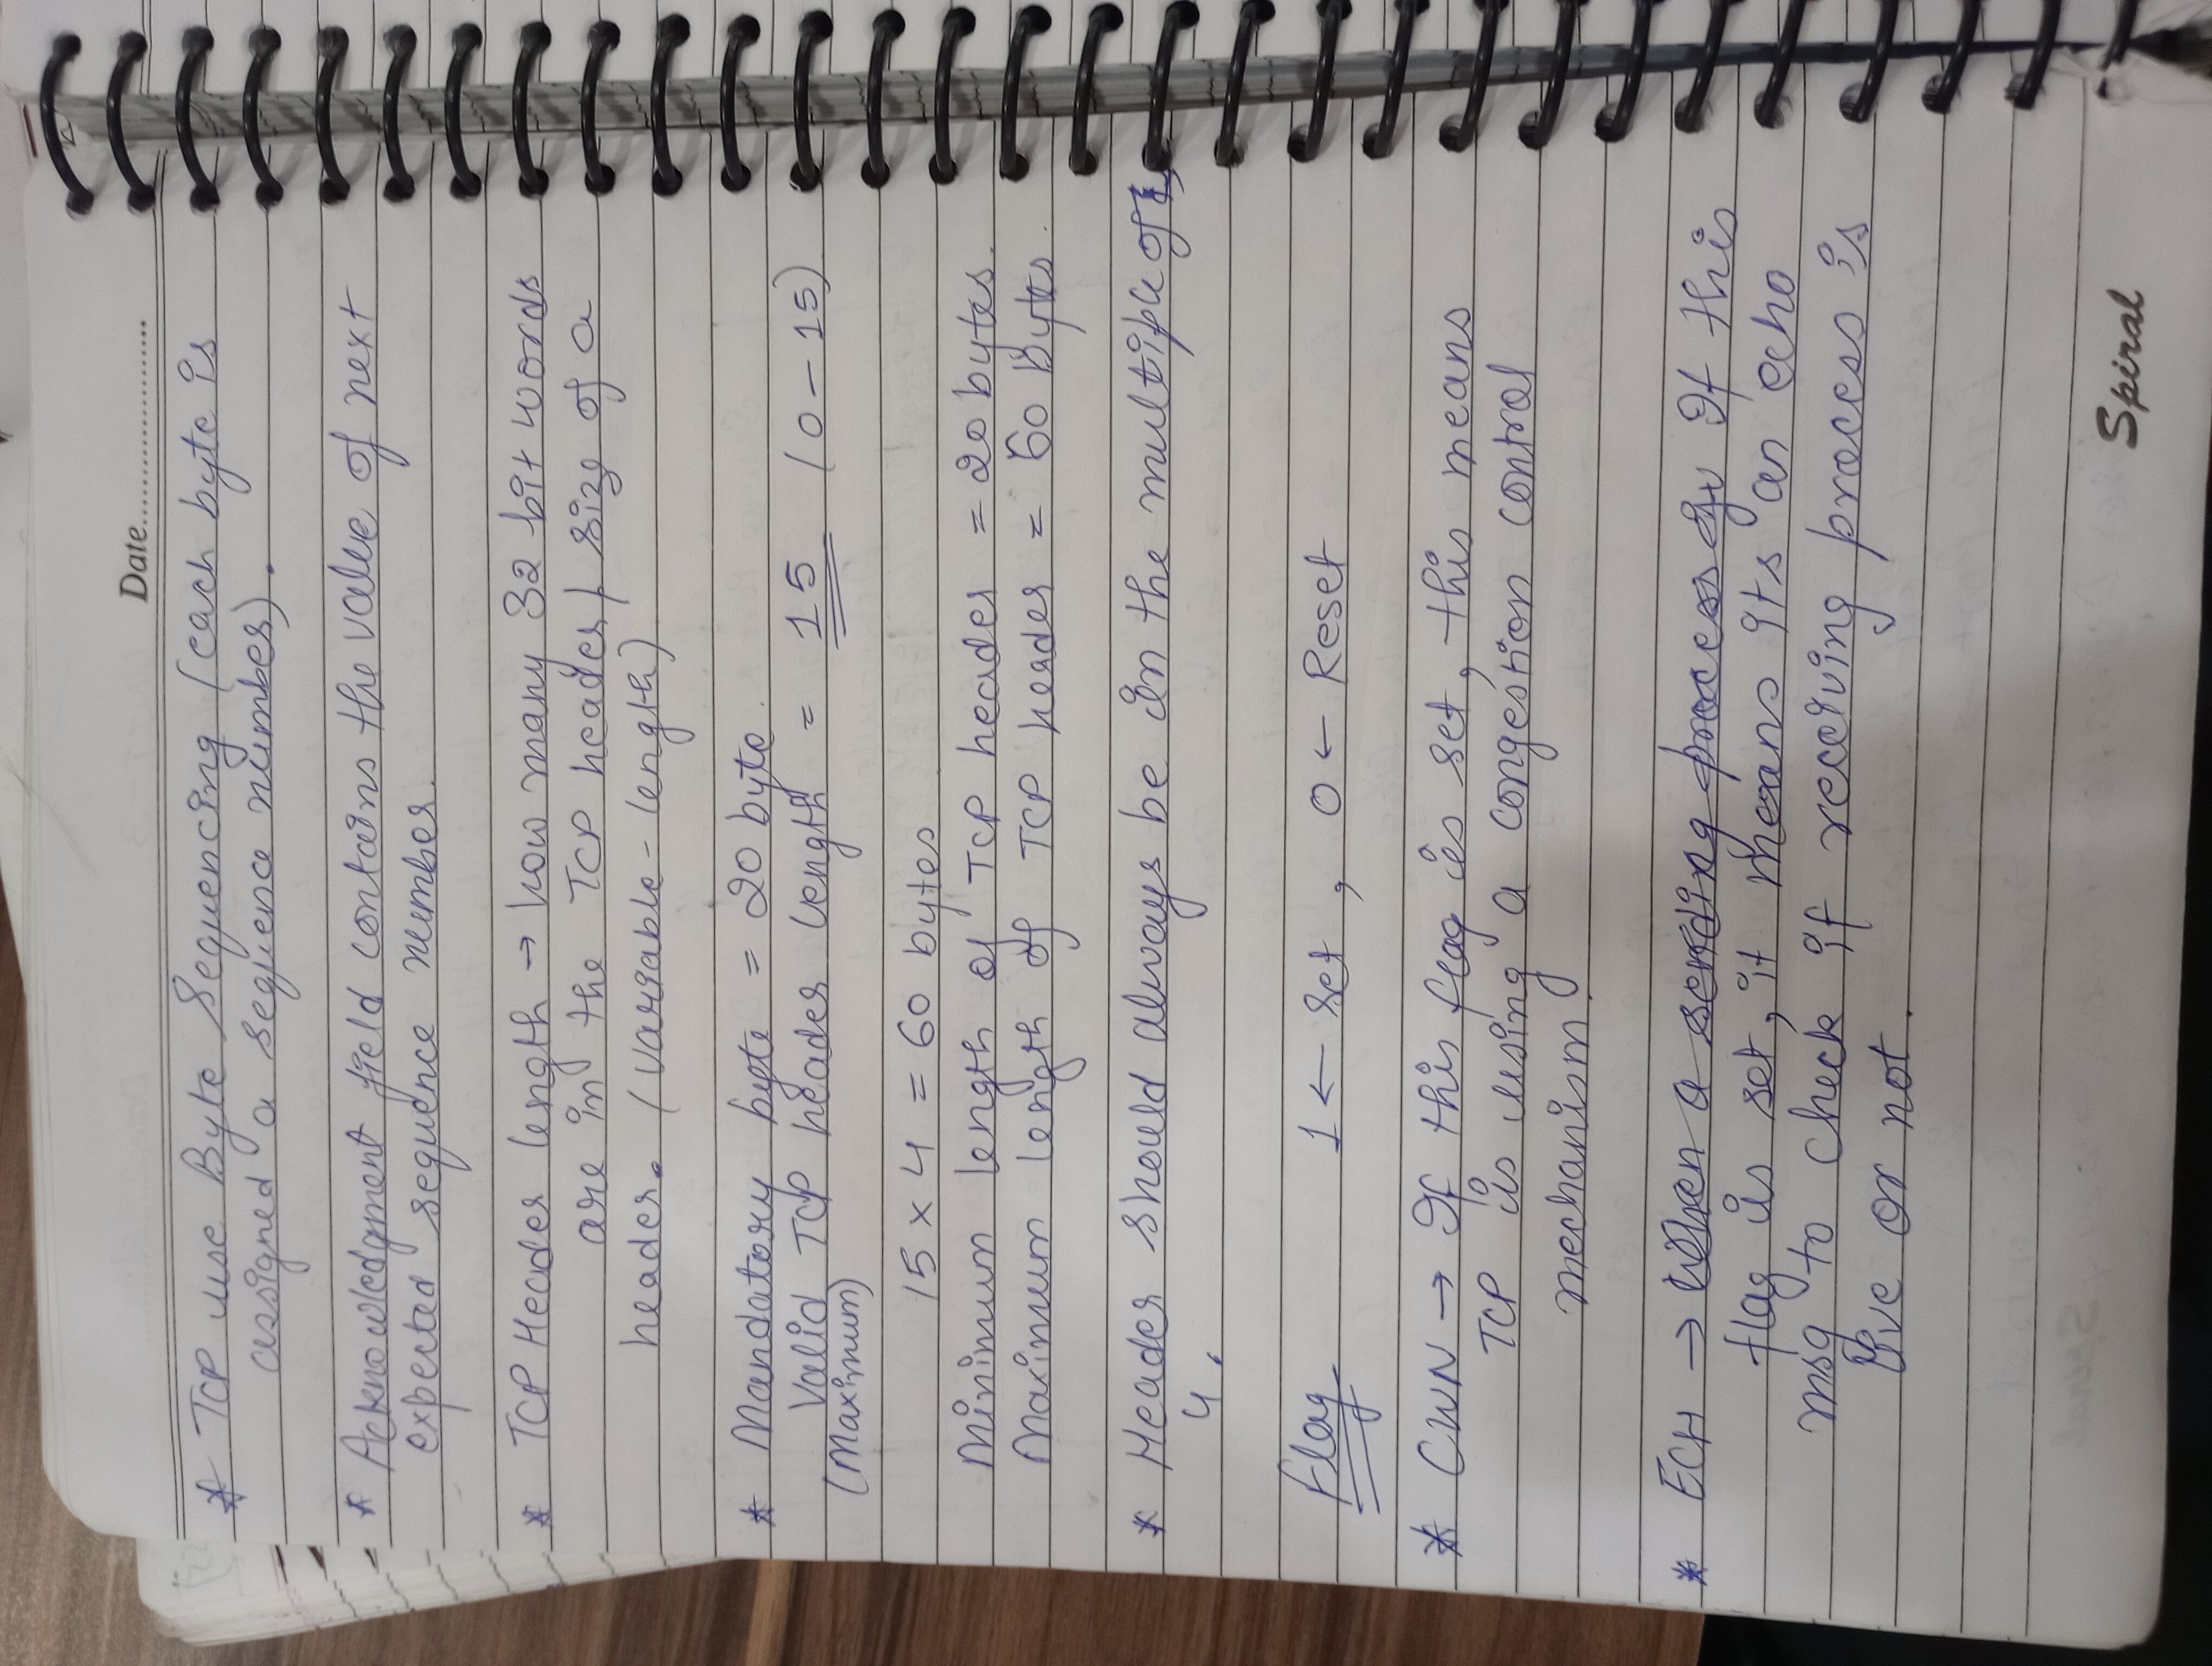 Date.....................
* TCP use Byte Sequencing (each byte is
assigned a sequence number).
* Acknowledgment field contains the value of next
expected sequence number.
* TCP Header length → how many 32 bit words
are in the TCP header / size of a
header. (variable - length)
* Mandatory byte = 20 byte.
Valid TCP header length = 15 (0 - 15)
(Maximum)
15 x 4 = 60 bytes
Minimum length of TCP header = 20 bytes.
Maximum length of TCP header = 60 bytes.
* Header should always be in the multiple of
4.
Flag 1 ← Set , 0 ← Reset
* CWN → If this flag is set, this means
TCP is using a congestion control
mechanism.
* ECH → When a sending process If this
flag is set, it means its an echo
msg to check if receiving process is
live or not.
Spiral